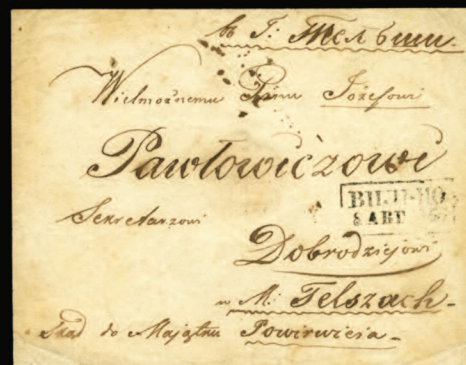 въ Г: Тельши.
Wielmożnemu Panu Józefowi
Pawłowiczowi
Sekretarzowi
ВИЛЬНО
8 АВГ
Dobrodziejowi
w M: Telszach
Ztąd do Majątku Powirwicia